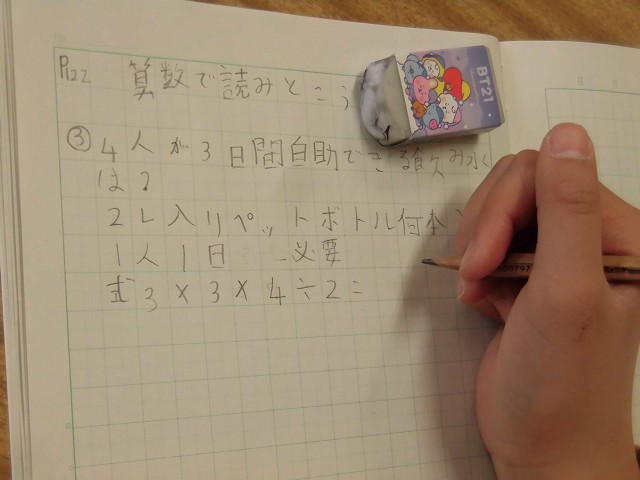 P122 算数で読みとこう
③ 4人が3日間自助できる飲み水く
は2
2L入りペットボトル何本
1人1日 必要
式 3×3×4÷2=
BT21